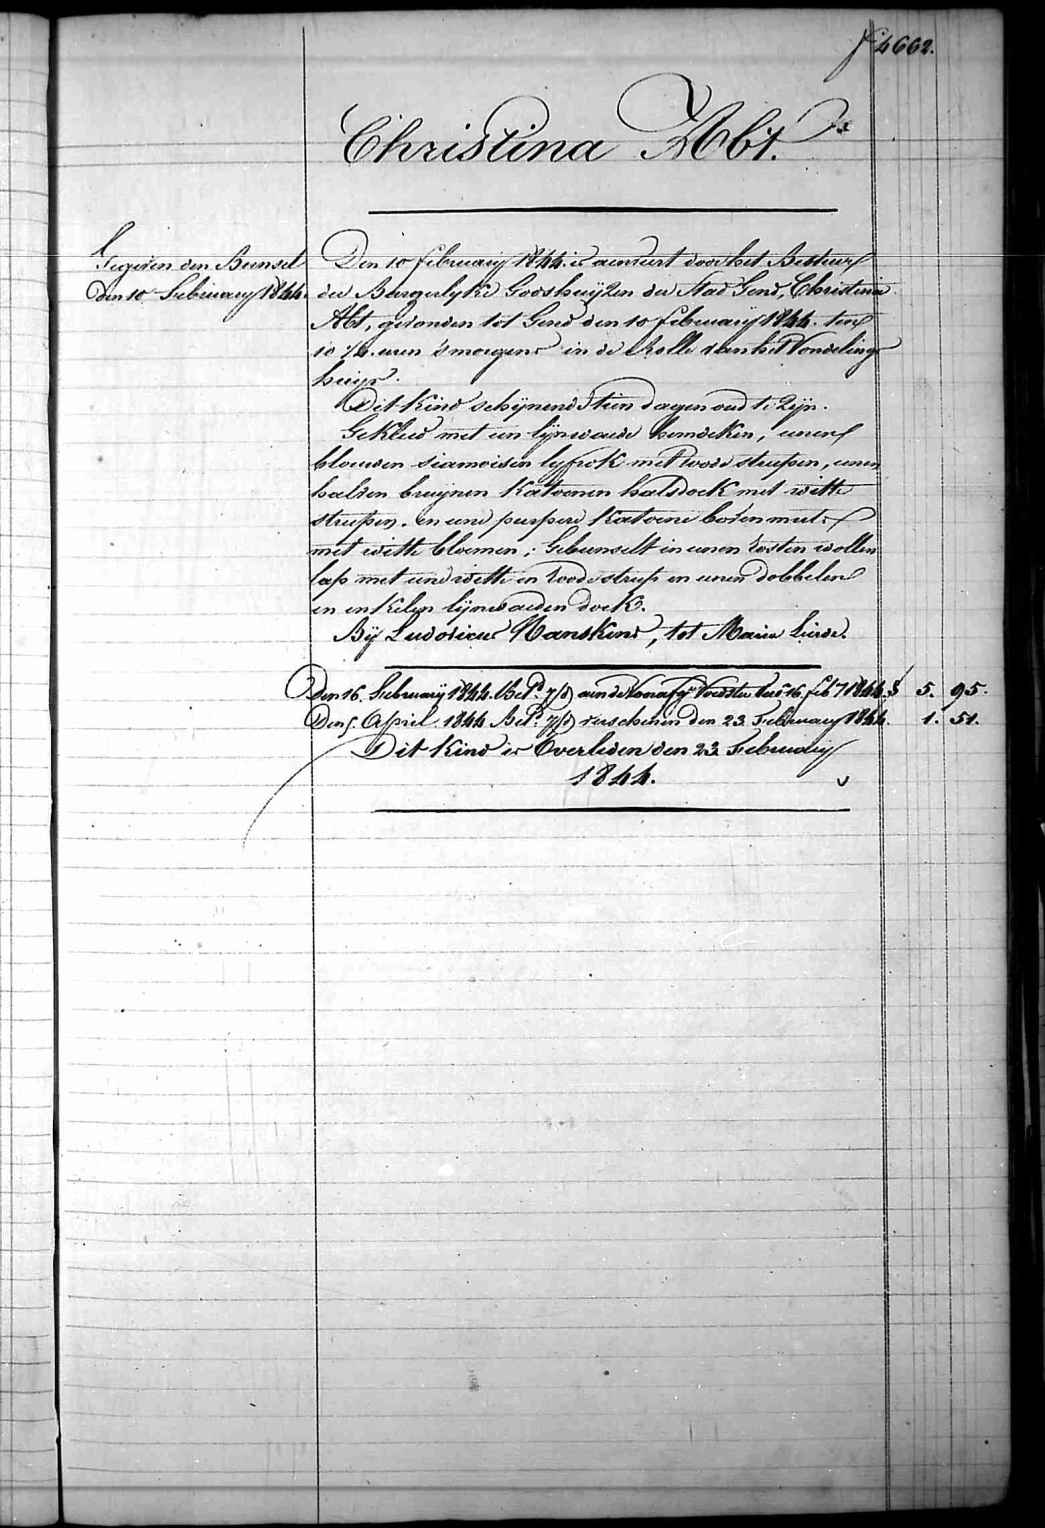 f° 4662.
Christina Abt.
Gegeven den Bunsel
den 10 February 1844.
Den 10 february 1844. is aenveert door het Bestier
der Burgerlyke Godshuyzen der Stad Gend, Christina
Abt, gevonden tot Gend den 10 february 1844. ten
10 ½ uren 's morgens in de Rolle van het Vondeling
huys.
Dit Kind schynende tien dagen oud te zyn.
Gekleed met een lynwaede hemdeken, eenen
blauwen siamoisen lyfrok met roode streepen, eenen
halven bruynen Katoenen halsdoek met witte
streepen. en eene purpere Katoene boven muts
met witte bloemen; Gebunselt in eenen rosten wollen
lap met eene witte en roode streep en eenen dobbelen
en enkelen lynwaeden doek.
By Ludovicus Manskens, tot Maria Lierde.
Den 16. February 1844. Bet.d aen de Voedster 16 feb 1844. 5. 95.
Den 5. April 1844. Bet.d verschenen den 23 February 1844. 1. 51.
Dit Kind is Overleden den 23 February
1844.